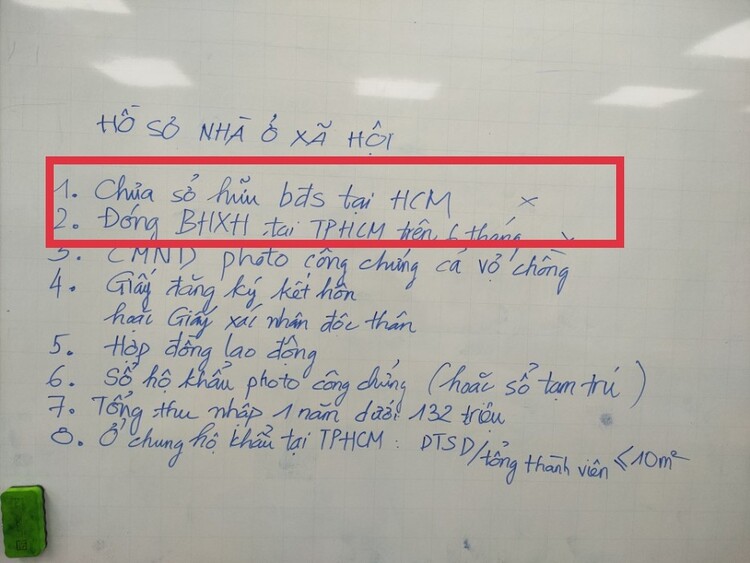 HỒ SƠ NHÀ Ở XÃ HỘI
1. Chưa sở hữu bđs tại HCM x
2. Đóng BHXH tại TPHCM trên 6 tháng x
3. CMND photo công chứng cả vợ chồng
4. Giấy đăng ký kết hôn
hoặc Giấy xác nhận độc thân
5. Hợp đồng lao động
6. Sổ hộ khẩu photo công chứng (hoặc sổ tạm trú)
7. Tổng thu nhập 1 năm dưới 132 triệu
8. Ở chung hộ khẩu tại TPHCM: DTSD/tổng thành viên ≤10m²